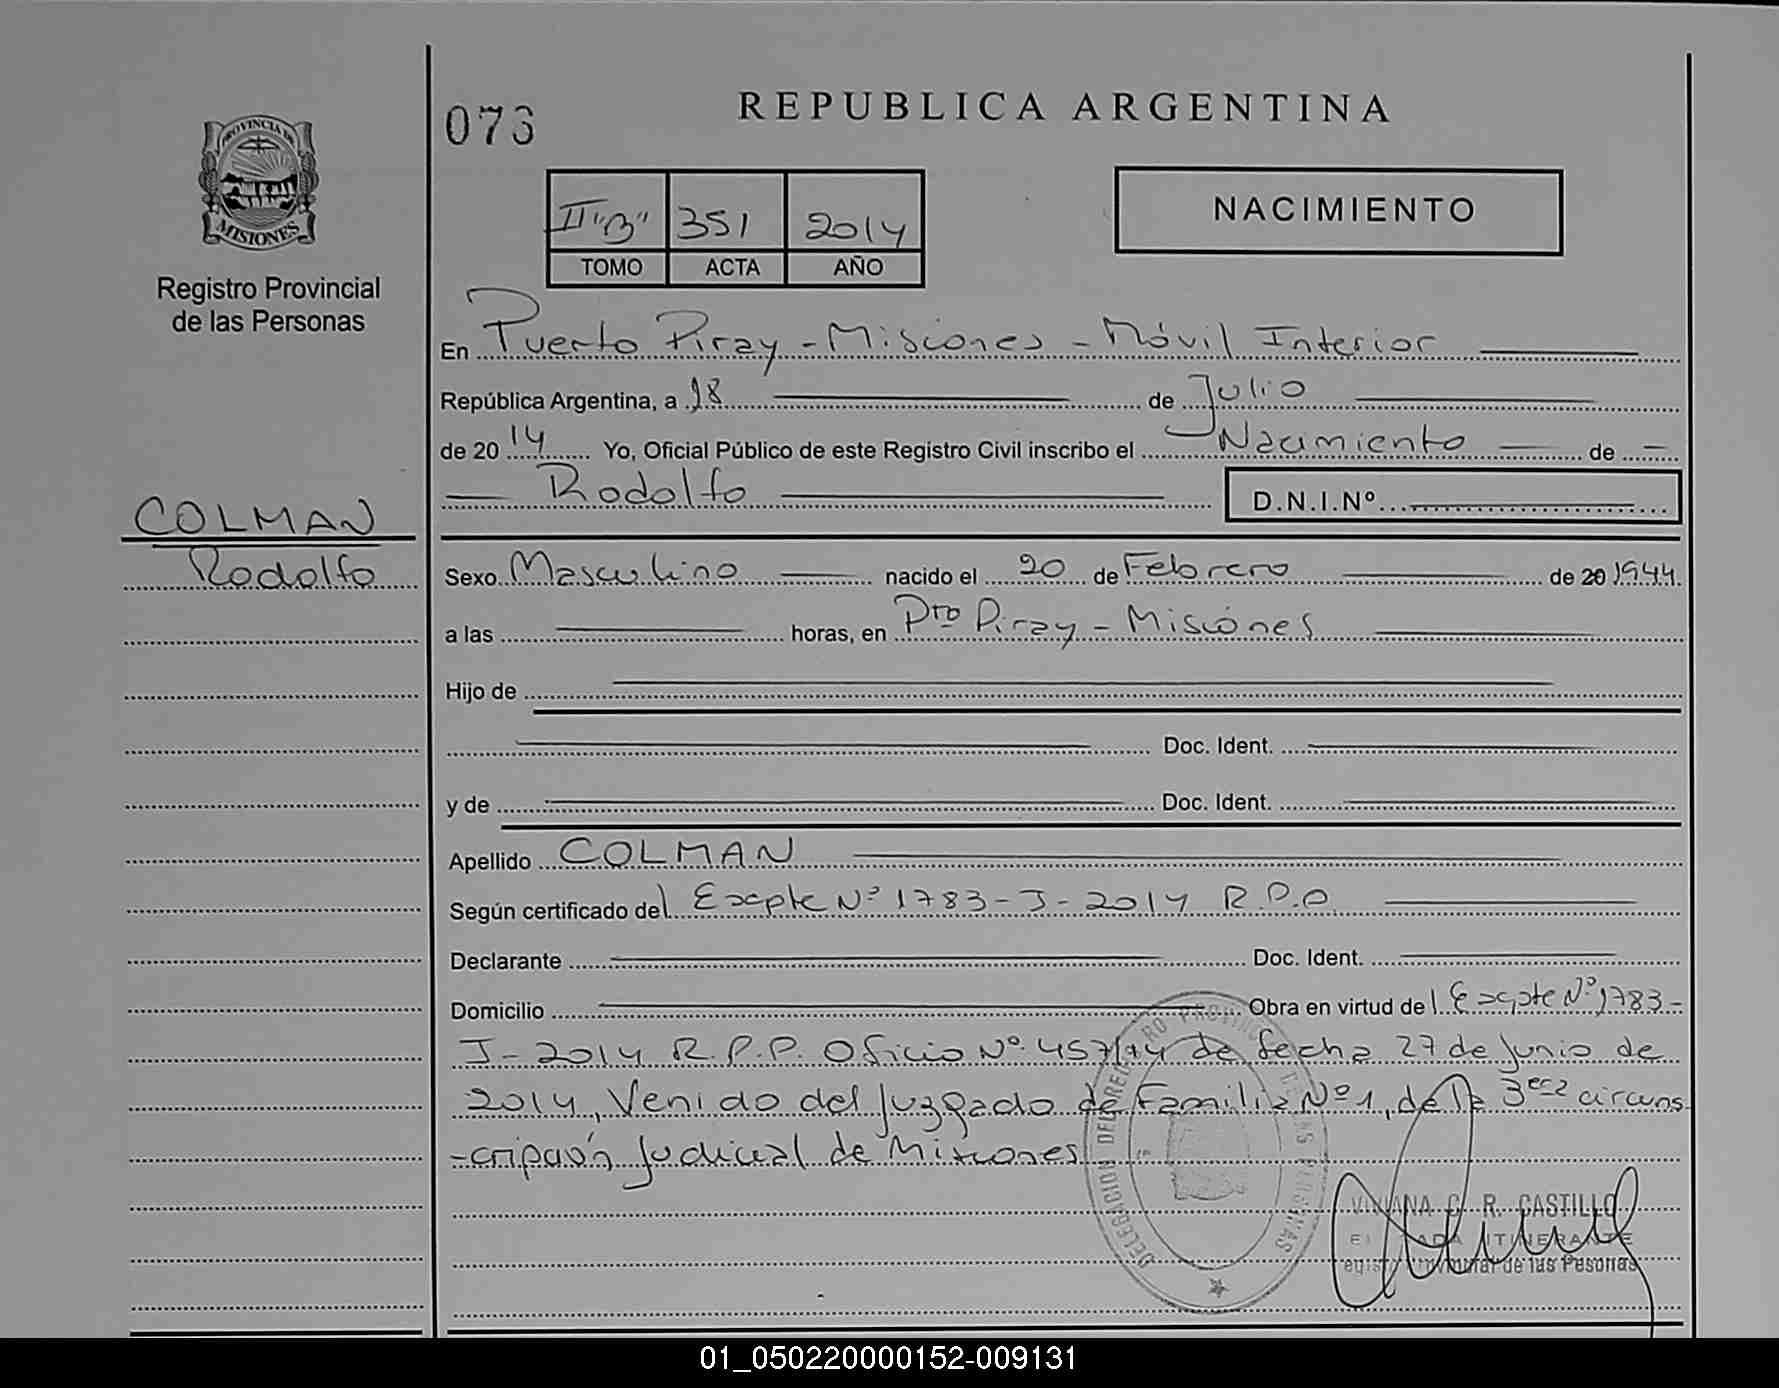 PROVINCIA DE
MISIONES
Registro Provincial
de las Personas
COLMAN
Rodolfo
073
REPUBLICA ARGENTINA
II "B" 351 2014
TOMO ACTA AÑO
NACIMIENTO
En Puerto Piray - Misiones - Móvil Interior
República Argentina, a 18 de Julio
de 20 14 Yo, Oficial Público de este Registro Civil inscribo el Nacimiento de -
Rodolfo D.N.I.Nº
Sexo Masculino nacido el 20 de Febrero de 20 1944
a las horas, en Pto Piray - Misiones
Hijo de
Doc. Ident.
y de Doc. Ident.
Apellido COLMAN
Según certificado del Expte Nº 1783-J-2014 R.P.P
Declarante Doc. Ident.
Domicilio Obra en virtud del Expte Nº 1783-
J-2014 R.P.P. Oficio Nº 457/14 de fecha 27 de Junio de
2014, Venido del Juzgado de Familia Nº 1, de la 3era circuns
-cripción Judicial de Misiones
DELEGACION DEL REGISTRO PROVINCIAL DE LAS PERSONAS
VIVIANA G. R. CASTILLO
ITINERANTE
Registro Provincial de las Pesonas
01_050220000152-009131